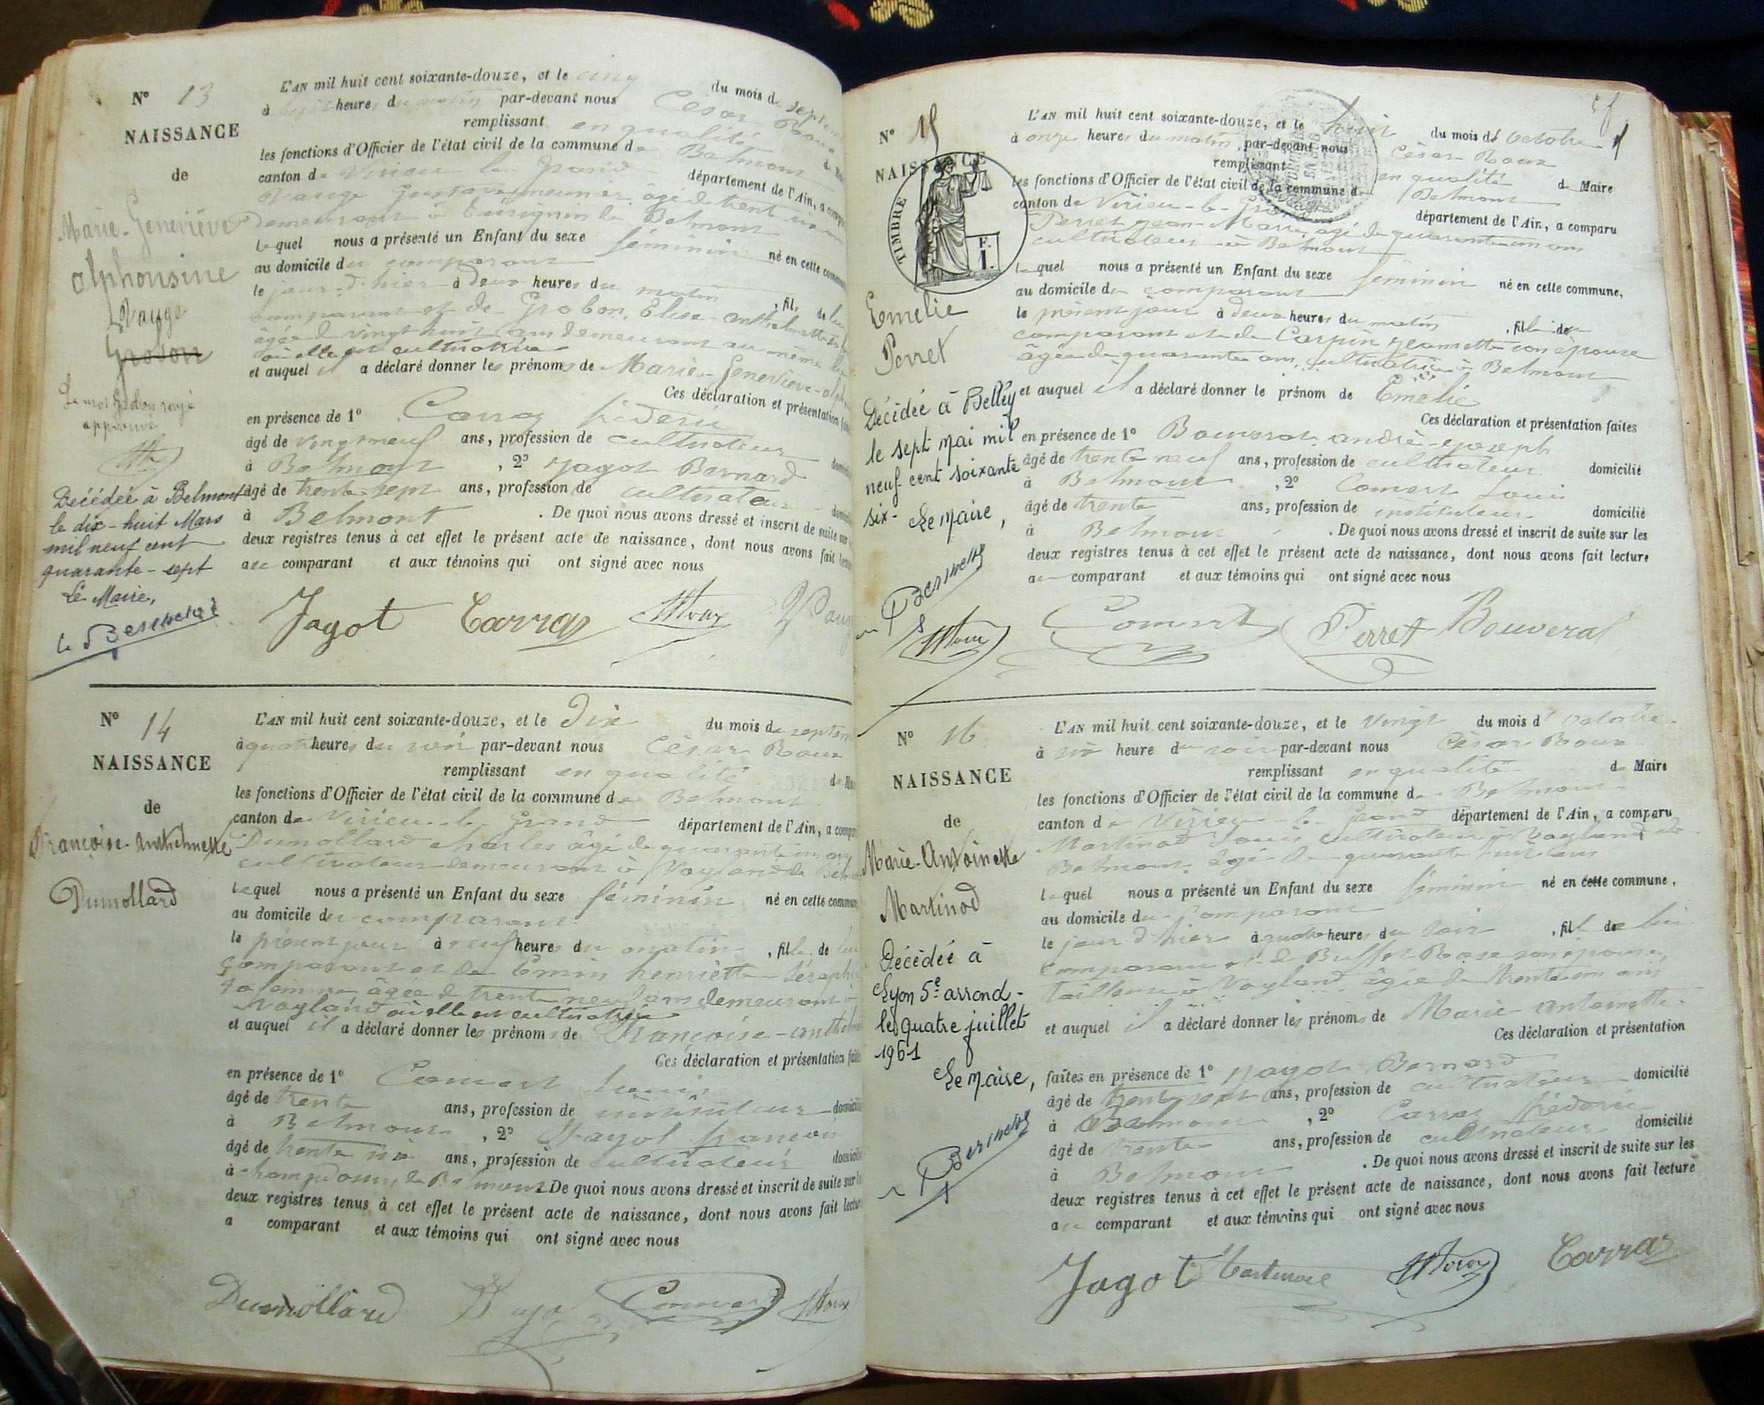 N° 13
NAISSANCE
de
Marie-Geneviève
Alphonsine
Vauge
Grobon
Le mot Grobon rayé
approuvé
Décédée à Belmont
le dix-huit Mars
mil neuf cent
quarante-sept
Le Maire,
L'AN mil huit cent soixante-douze, et le cinq du mois de septem
à huit heures du matin par-devant nous César Roux
remplissant en qualité de
les fonctions d'Officier de l'état civil de la commune de Belmont
canton de Virieu le Grand département de l'Ain, a comparu
Vauge Gustave meunier, âgé de trente
demeurant à Belmont
lequel nous a présenté un Enfant du sexe féminin né en cette commune
au domicile du comparant
le jour d'hier à deux heures du matin, fille de lui
comparant et de Grobon, Elise
âgée de vingt huit ans demeurant au même lieu
où elle est cultivatrice
et auquel il a déclaré donner les prénoms de Marie-Geneviève-Alph
Ces déclaration et présentation
en présence de 1° Carraz Fréderic
âgé de vingt neuf ans, profession de cultivateur
à Belmont, 2° Jagot Bernard
âgé de trente sept ans, profession de cultivateur
à Belmont. De quoi nous avons dressé et inscrit de suite sur
deux registres tenus à cet effet le présent acte de naissance, dont nous avons fait lecture
au comparant et aux témoins qui ont signé avec nous
Jagot Carraz Roux Vauge
N° 14
NAISSANCE
de
Françoise-Anthelmette
Dumollard
L'AN mil huit cent soixante-douze, et le Dix du mois de septem
à quatre heures du soir par-devant nous César Roux
remplissant en qualité de
les fonctions d'Officier de l'état civil de la commune de Belmont
canton de Virieu le Grand département de l'Ain, a comparu
Dumollard Charles âgé de quarante ans
cultivateur demeurant à Vogland de Belmont
lequel nous a présenté un Enfant du sexe féminin né en cette commune
au domicile du comparant
le présent jour à neuf heures du matin, fille de lui
comparant et de Emin henriette Séraphi
sa femme âgée de trente neuf ans demeurant à
Vogland où elle est cultivatrice
et auquel il a déclaré donner les prénoms de Françoise-anthel
Ces déclaration et présentation faites
en présence de 1° Comert Louis
âgé de trente ans, profession de instituteur domicilié
à Belmont, 2° Mayot françois
âgé de trente six ans, profession de cultivateur domicilié
à de Belmont. De quoi nous avons dressé et inscrit de suite sur
deux registres tenus à cet effet le présent acte de naissance, dont nous avons fait lecture
a comparant et aux témoins qui ont signé avec nous
Dumollard Comert Roux
N° 15
NAISSANCE
TIMBRE
F.
I.
Emelie
Perret
Décédée à Belley
le sept mai mil
neuf cent soixante
six-
Le Maire,
L'AN mil huit cent soixante-douze, et le huit du mois d'octobre
à onze heures du matin, par-devant nous César Roux
remplissant en qualité de Maire
les fonctions d'Officier de l'état civil de la commune de Belmont
canton de Virieu-le-Grand département de l'Ain, a comparu
Perret Jean-Marie, âgé de quarante un ans
cultivateur à Belmont
lequel nous a présenté un Enfant du sexe féminin né en cette commune,
au domicile du comparant
le présent jour à deux heures du matin, fille de
comparant et de Carpin jeannette son épouse
âgée de quarante ans, cultivatrice à Belmont
et auquel il a déclaré donner le prénom de Emélie
Ces déclaration et présentation faites
en présence de 1° Bouverat andré-joseph
âgé de trente neuf ans, profession de cultivateur domicilié
à Belmont, 2° Comert Louis
âgé de trente ans, profession de instituteur domicilié
à Belmont. De quoi nous avons dressé et inscrit de suite sur les
deux registres tenus à cet effet le présent acte de naissance, dont nous avons fait lecture
au comparant et aux témoins qui ont signé avec nous
Roux Comert Perret Bouverat
N° 16
NAISSANCE
de
Marie-Antoinette
Martinod
Décédée à
Lyon 5e arrond-
le quatre juillet
1961
Le Maire,
L'AN mil huit cent soixante-douze, et le vingt du mois d'octobre
à six heure du soir par-devant nous César Roux
remplissant en qualité de Maire
les fonctions d'Officier de l'état civil de la commune de Belmont
canton de Virieu-le-Grand département de l'Ain, a comparu
Martinod Louis cultivateur à Vogland de
Belmont âgé de quarante huit ans
lequel nous a présenté un Enfant du sexe féminin né en cette commune,
au domicile du comparant
le jour d'hier à quatre heures du soir, fille de lui
comparant et de Buffet Rose son épouse
tailleuse à Vogland âgée de trente un ans
et auquel il a déclaré donner les prénoms de Marie-antoinette.
Ces déclaration et présentation
faites en présence de 1° Jagot Bernard
âgé de trente sept ans, profession de cultivateur domicilié
à Belmont, 2° Carraz Fréderic
âgé de trente ans, profession de cultivateur domicilié
à Belmont. De quoi nous avons dressé et inscrit de suite sur les
deux registres tenus à cet effet le présent acte de naissance, dont nous avons fait lecture
au comparant et aux témoins qui ont signé avec nous
Jagot Martinod Roux Carraz